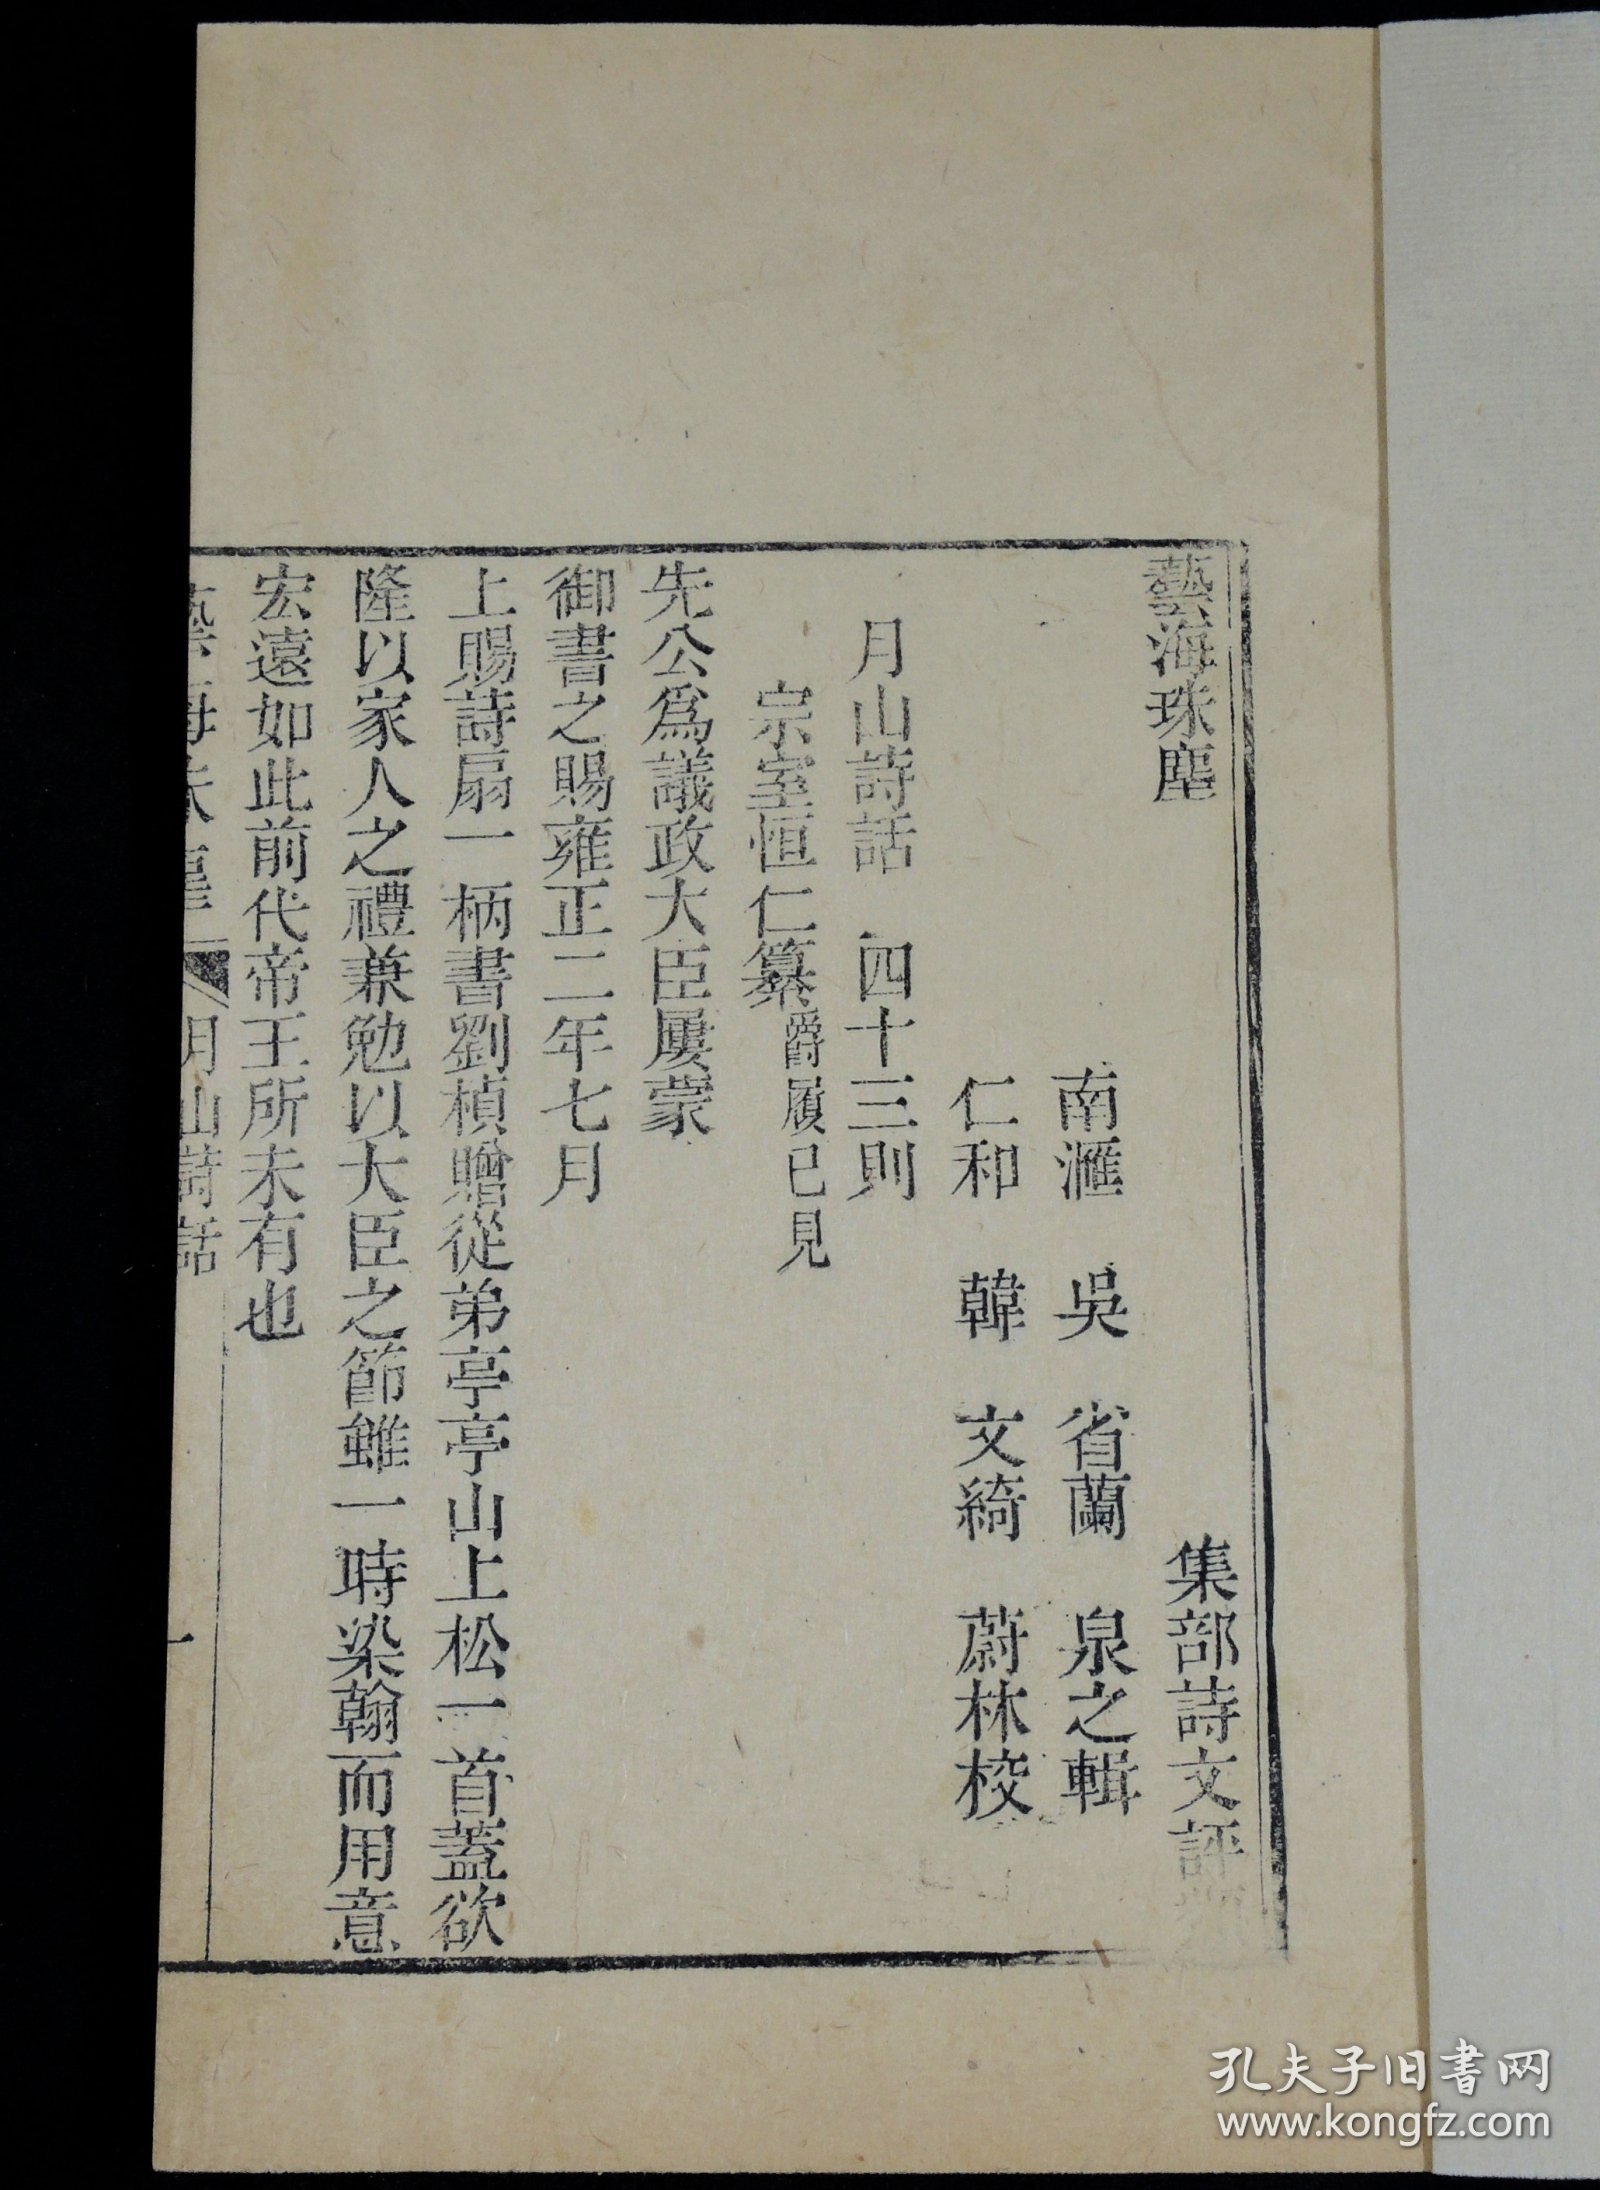 藝海珠塵
集部詩文評
南滙 吳 省蘭 泉之輯
仁和 韓 文綺 蔚林校
月山詩話 四十三則
宗室恒仁纂 爵履已見
先公爲議政大臣屢蒙
御書之賜雍正二年七月
上賜詩扇一柄書劉楨贈從弟亭亭山上松一首蓋欲
隆以家人之禮兼勉以大臣之節雖一時染翰而用意
宏遠如此前代帝王所未有也
藝海朱塵 月山詩話 一
孔夫子旧书网
www.kongfz.com